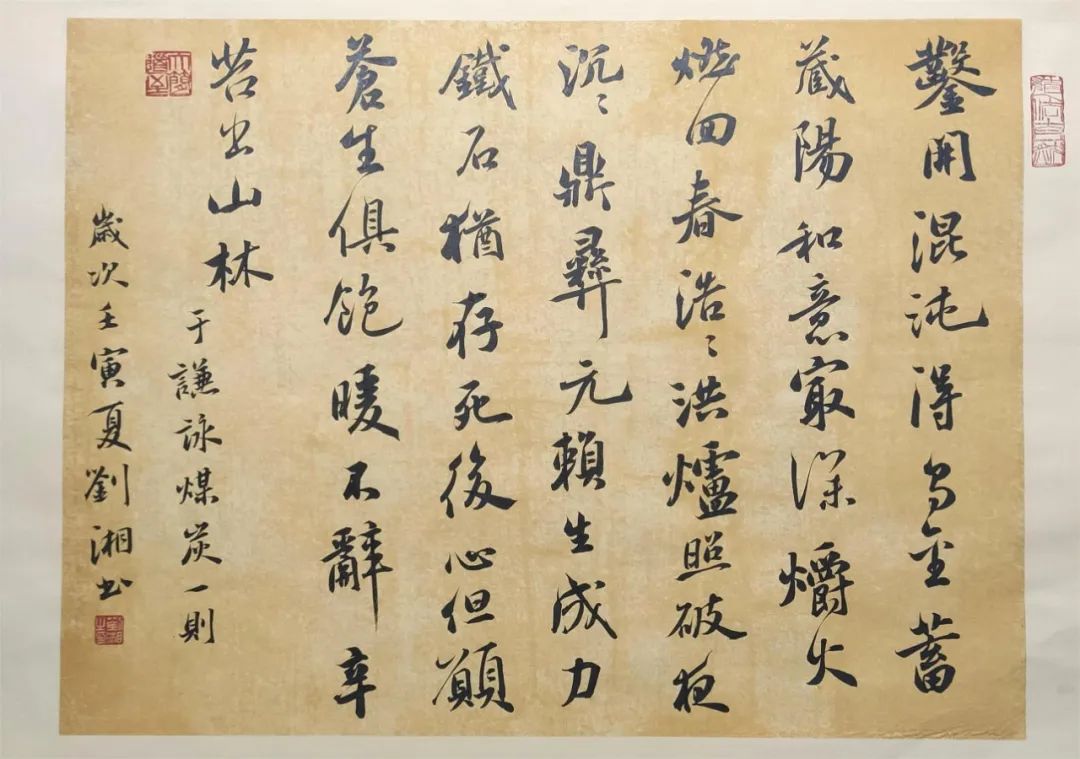 鑿開混沌得烏金蓄
藏陽和意最深爝火
燃回春浩〻洪爐照破夜
沉〻鼎彝元賴生成力
鐵石猶存死後心但願
蒼生俱飽暖不辭辛
苦出山林
于謙詠煤炭一則
歲次壬寅夏劉湘书